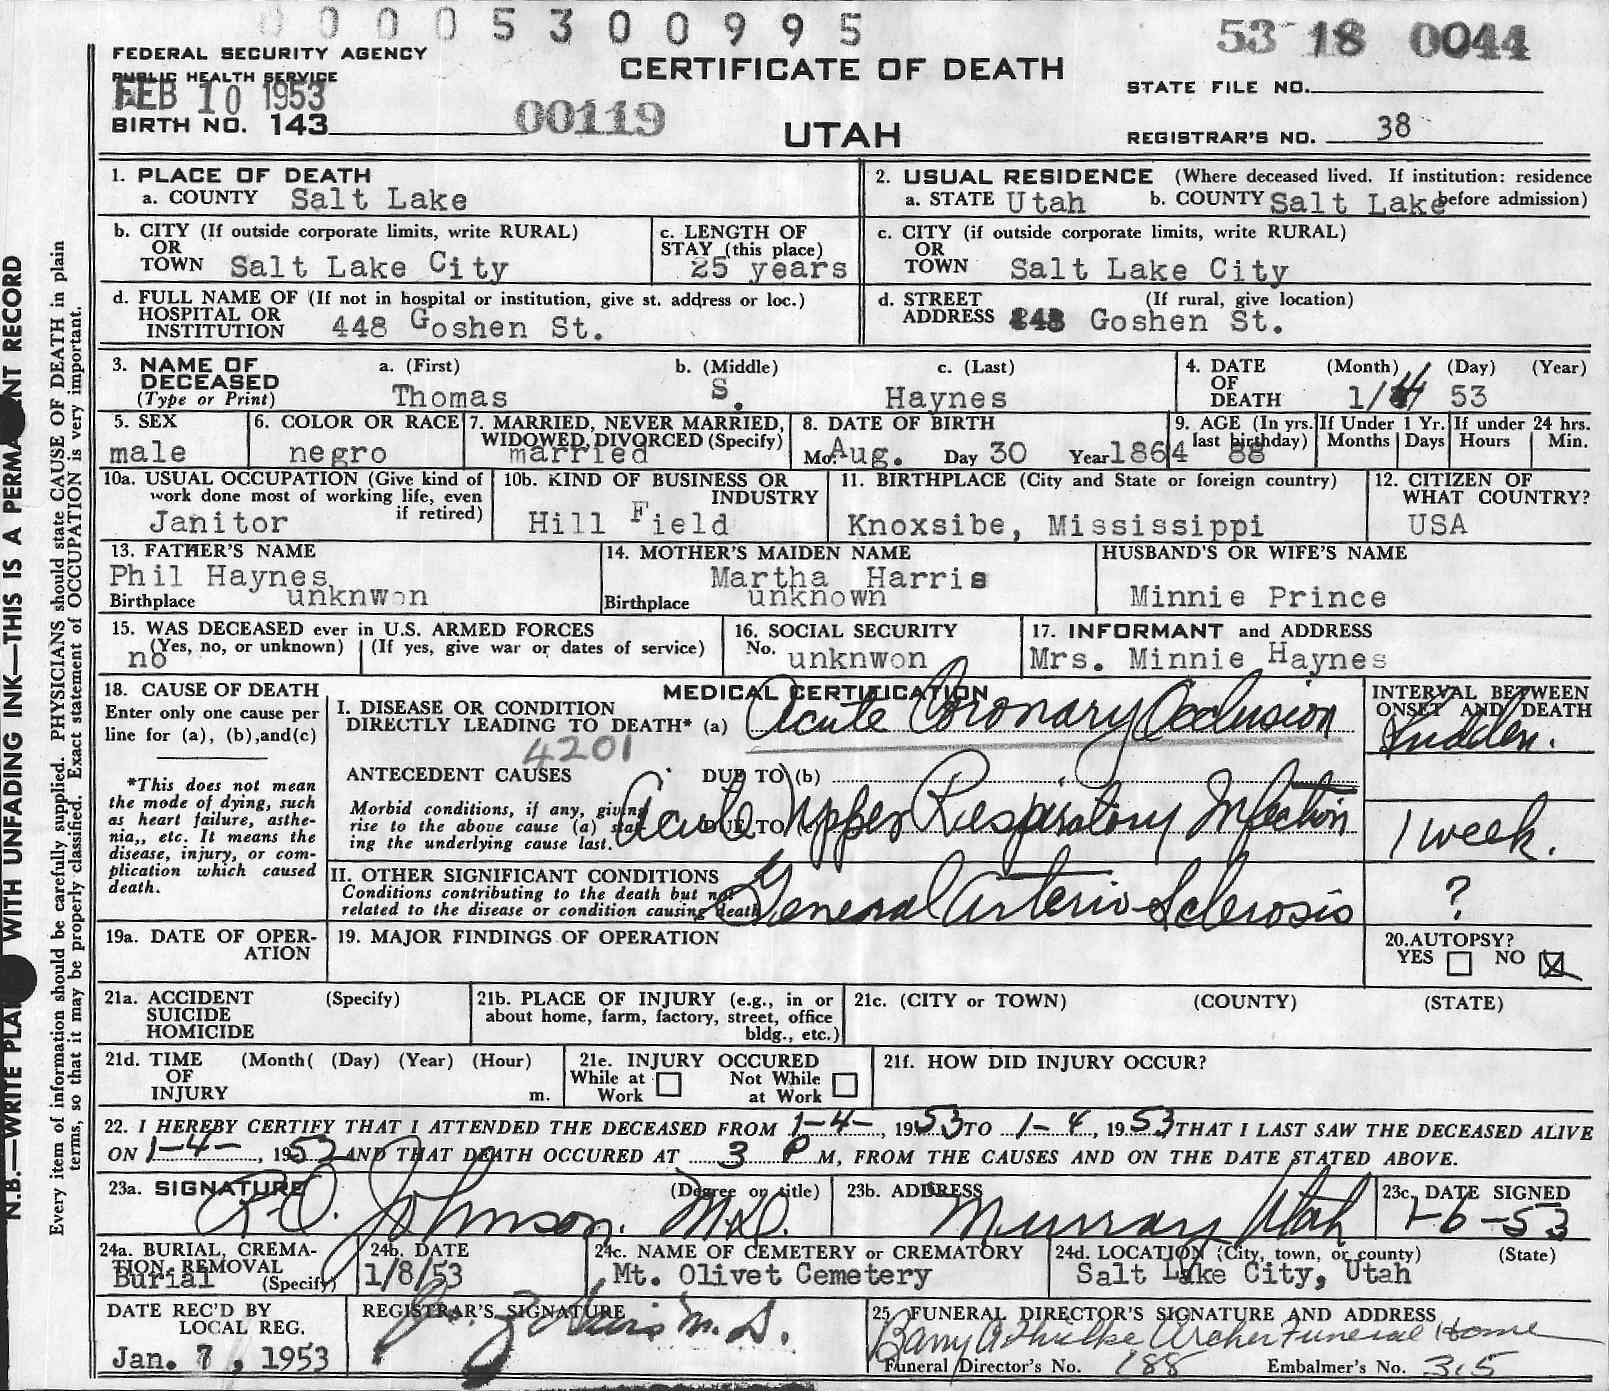 0 0 0 0 5 3 0 0 9 9 5
53 18 0044
FEDERAL SECURITY AGENCY
PUBLIC HEALTH SERVICE
FEB 10 1953
BIRTH NO. 143
00119
CERTIFICATE OF DEATH
UTAH
STATE FILE NO.
REGISTRAR'S NO. 38
1. PLACE OF DEATH
a. COUNTY Salt Lake
2. USUAL RESIDENCE (Where deceased lived. If institution: residence before admission)
a. STATE Utah b. COUNTY Salt Lake
b. CITY (If outside corporate limits, write RURAL)
OR
TOWN Salt Lake City
c. LENGTH OF
STAY (this place)
25 years
c. CITY (if outside corporate limits, write RURAL)
OR
TOWN Salt Lake City
d. FULL NAME OF (If not in hospital or institution, give st. address or loc.)
HOSPITAL OR
INSTITUTION 448 Goshen St.
d. STREET (If rural, give location)
ADDRESS Goshen St.
3. NAME OF
DECEASED
(Type or Print)
a. (First) b. (Middle) c. (Last)
Thomas S. Haynes
4. DATE
OF
DEATH
(Month) (Day) (Year)
1/4/ 53
5. SEX
male
6. COLOR OR RACE
negro
7. MARRIED, NEVER MARRIED,
WIDOWED, DIVORCED (Specify)
married
8. DATE OF BIRTH
Mo. Aug. Day 30 Year 1864
9. AGE (In yrs. last birthday)
88
If Under 1 Yr.
Months Days
If under 24 hrs.
Hours Min.
10a. USUAL OCCUPATION (Give kind of
work done most of working life, even
if retired)
Janitor
10b. KIND OF BUSINESS OR
INDUSTRY
Hill Field
11. BIRTHPLACE (City and State or foreign country)
Knoxsibe, Mississippi
12. CITIZEN OF
WHAT COUNTRY?
USA
13. FATHER'S NAME
Phil Haynes
Birthplace unknwon
14. MOTHER'S MAIDEN NAME
Martha Harris
Birthplace unknown
HUSBAND'S OR WIFE'S NAME
Minnie Prince
15. WAS DECEASED ever in U.S. ARMED FORCES
(Yes, no, or unknown) (If yes, give war or dates of service)
no
16. SOCIAL SECURITY
No. unknwon
17. INFORMANT and ADDRESS
Mrs. Minnie Haynes
18. CAUSE OF DEATH
Enter only one cause per
line for (a), (b), and (c)
*This does not mean
the mode of dying, such
as heart failure, asthe-
nia,, etc. It means the
disease, injury, or com-
plication which caused
death.
MEDICAL CERTIFICATION
I. DISEASE OR CONDITION
DIRECTLY LEADING TO DEATH* (a) Acute Coronary Occlusion
4201
ANTECEDENT CAUSES DUE TO (b)
Morbid conditions, if any, giving
rise to the above cause (a) stat-
ing the underlying cause last.
DUE TO (c)
Acute Upper Respiratory Infection
II. OTHER SIGNIFICANT CONDITIONS
Conditions contributing to the death but not
related to the disease or condition causing death
General Arterio-Sclerosis
INTERVAL BETWEEN
ONSET AND DEATH
Sudden.
1 week.
?
19a. DATE OF OPER-
ATION
19. MAJOR FINDINGS OF OPERATION
20. AUTOPSY?
YES NO
21a. ACCIDENT (Specify)
SUICIDE
HOMICIDE
21b. PLACE OF INJURY (e.g., in or
about home, farm, factory, street, office
bldg., etc.)
21c. (CITY or TOWN) (COUNTY) (STATE)
21d. TIME (Month( (Day) (Year) (Hour)
OF
INJURY m.
21e. INJURY OCCURED
While at Work Not While at Work
21f. HOW DID INJURY OCCUR?
22. I HEREBY CERTIFY THAT I ATTENDED THE DECEASED FROM 1-4-, 1953 TO 1-4, 1953 THAT I LAST SAW THE DECEASED ALIVE
ON 1-4-, 1953 AND THAT DEATH OCCURED AT 3 P M, FROM THE CAUSES AND ON THE DATE STATED ABOVE.
23a. SIGNATURE (Degree or title)
Johnson. M.D.
23b. ADDRESS
Murray Utah
23c. DATE SIGNED
1-6-53
24a. BURIAL, CREMA-
TION, REMOVAL
Burial (Specify)
24b. DATE
1/8/53
24c. NAME OF CEMETERY or CREMATORY
Mt. Olivet Cemetery
24d. LOCATION (City, town, or county) (State)
Salt Lake City, Utah
DATE REC'D BY
LOCAL REG.
Jan. 7, 1953
REGISTRAR'S SIGNATURE
M. D.
25. FUNERAL DIRECTOR'S SIGNATURE AND ADDRESS
Archer Funeral Home
Funeral Director's No. 188 Embalmer's No. 315
N.B.—WRITE PLAI WITH UNFADING INK—THIS IS A PERMA NT RECORD
Every item of information should be carefully supplied. PHYSICIANS should state CAUSE OF DEATH in plain
terms, so that it may be properly classified. Exact statement of OCCUPATION is very important.